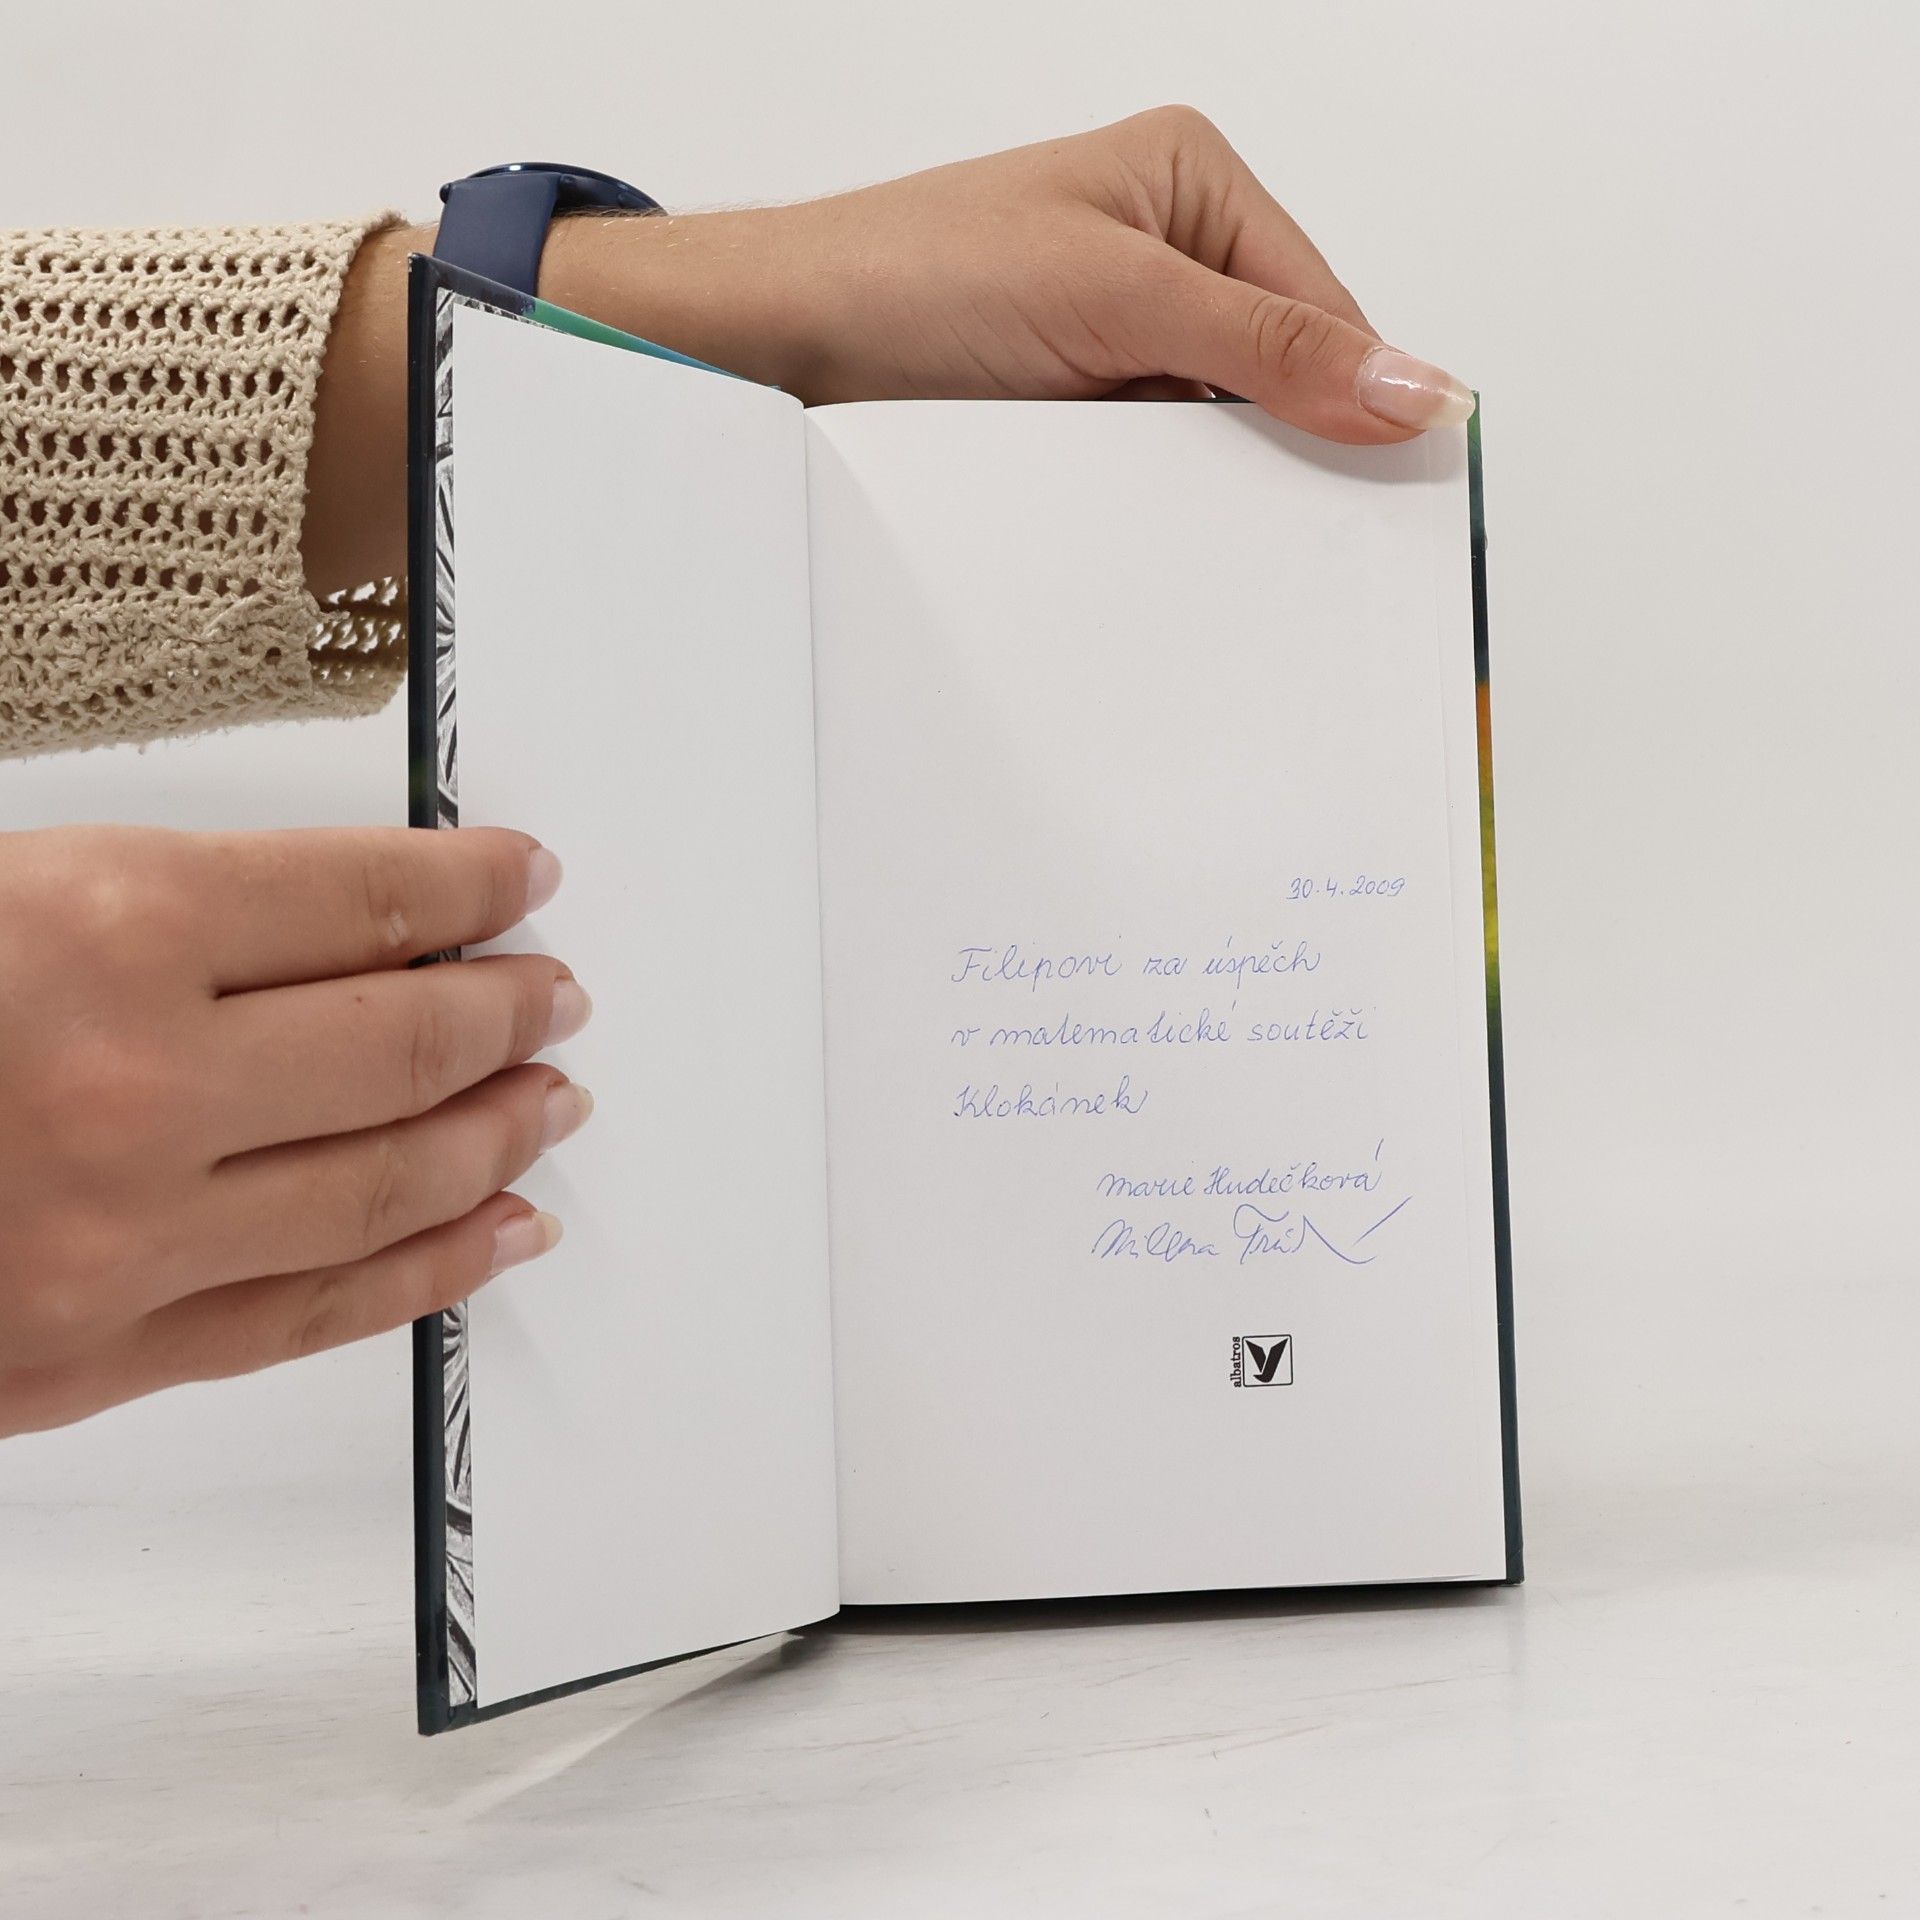 30.4.2009
Filipovi za úspěch
v matematické soutěži
Klokánek
Marie Hudečková
Milena
albatros